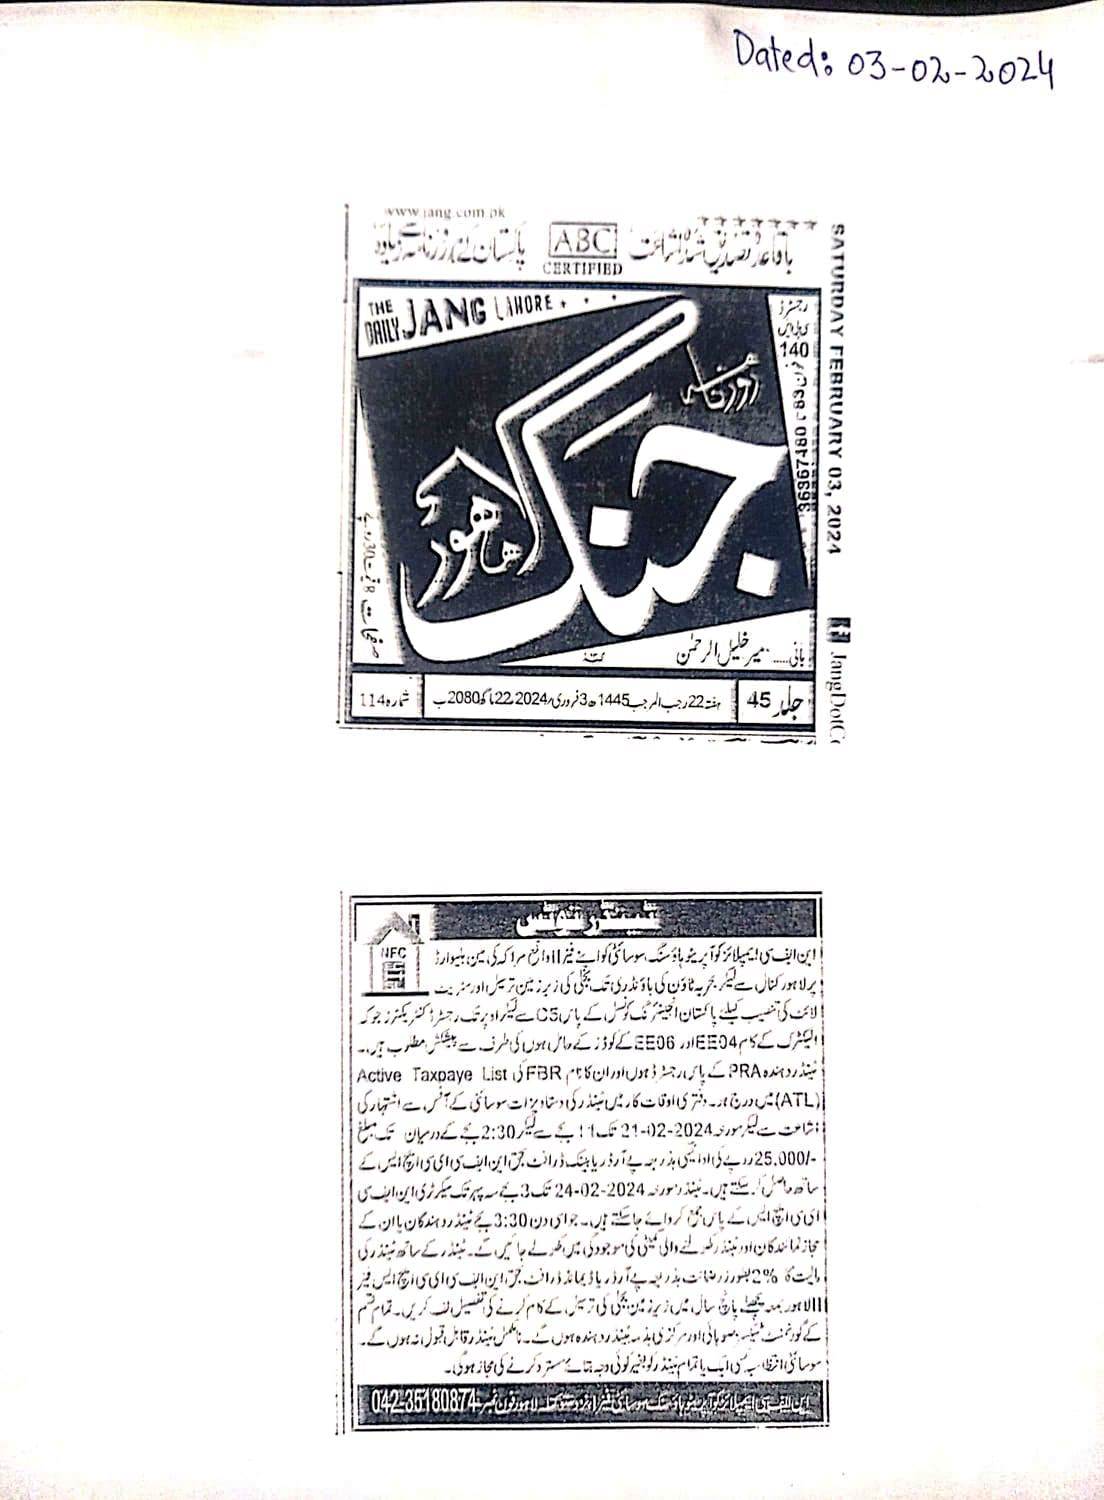 Dated: 03-02-2024
www.jang.com.pk
پاکستان کے ہر روزنامہ سے زیادہ
ABC
CERTIFIED
باقاعدہ تصدیق شدہ اشاعت
SATURDAY FEBRUARY 03, 2024
THE DAILY JANG LAHORE
رجسٹرڈ
سی پی ایل
140
روزنامہ
جنگ
لاہور
بانی.... میر خلیل الرحمٰن
JangDotC
جلد 45
ہفتہ 22 رجب المرجب 1445ھ 3 فروری 2024ء 22 ماگھ 2080ب
شمارہ 114
ٹینڈر نوٹس
NFC
این ایف سی ایمپلائز کوآپریٹو ہاؤسنگ سوسائٹی کو اپنے فیز II واقع مراکہ کی مین بلیوارڈ
پر لاہور کنال سے لیکر بحریہ ٹاؤن کی باؤنڈری تک بجلی کی زیر زمین ترسیل اور سٹریٹ
لائٹ کی تنصیب کیلئے پاکستان انجینئرنگ کونسل کے پاس C5 سے لیکر اوپر تک رجسٹرڈ کنٹریکٹرز جو کہ
الیکٹرک کے کام EE04 اور EE06 کے کوڈز کے حامل ہوں کی طرف سے پیشکش مطلوب ہیں۔
ٹینڈر دہندہ PRA کے پاس رجسٹرڈ ہوں اور ان کا نام FBR کی Active Taxpaye List
(ATL) میں درج ہو۔ دفتری اوقات کار میں ٹینڈر کی دستاویزات سوسائٹی کے آفس سے اشتہار کی
اشاعت سے لیکر مورخہ 21-02-2024 تک 11 بجے سے لیکر 2:30 بجے کے درمیان تک مبلغ
25,000/- روپے کی ادائیگی بذریعہ پے آرڈر یا بینک ڈرافٹ بحق این ایف سی ای سی ایچ ایس کے
ساتھ حاصل کر سکتے ہیں۔ ٹینڈر مورخہ 24-02-2024 تک 3 بجے سہ پہر تک سیکرٹری این ایف سی
ای سی ایچ ایس کے پاس جمع کروائے جا سکتے ہیں۔ جو اسی دن 3:30 بجے ٹینڈر دہندگان یا ان کے
مجاز نمائندگان اور ٹینڈر کھولنے والی کمیٹی کی موجودگی میں کھولے جائیں گے۔ ٹینڈر کے ساتھ ٹینڈر کی
مالیت کا 2% بطور زر ضمانت بذریعہ پے آرڈر یا ڈیمانڈ ڈرافٹ بحق این ایف سی ای سی ایچ ایس فیز
II لاہور بمعہ پچھلے پانچ سال میں زیر زمین بجلی کی ترسیل کے کام کرنے کی تفصیل لف کریں۔ تمام قسم
کے گورنمنٹ ٹیکسز صوبائی اور مرکزی بذمہ ٹینڈر دہندہ ہوں گے۔ نامکمل ٹینڈر قابل قبول نہ ہوں گے۔
سوسائٹی انتظامیہ کسی ایک یا تمام ٹینڈر کو بغیر کوئی وجہ بتائے مسترد کرنے کی مجاز ہوگی۔
این ایف سی ایمپلائز کوآپریٹو ہاؤسنگ سوسائٹی فیز 1 نزد ستوکتلہ لاہور فون نمبر 042-35180874